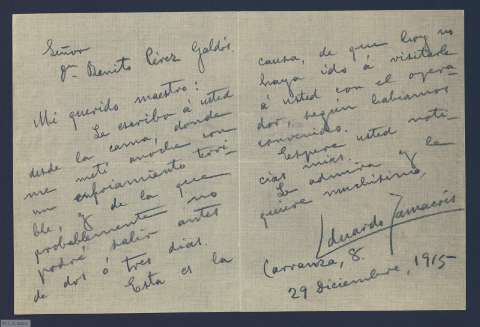 Señor
Dn. Benito Pérez Galdós.
Mi querido maestro:
Le escribo á usted
desde la cama, donde
me metí anoche con
un enfriamiento terri-
ble, y de la que
probablemente no
podré salir antes
de dos ó tres dias.
Esta es la
causa, de que hoy no
haya ido á visitarle
á usted con el opera-
dor, según habiamos
convenido.
Espere usted noti-
cias mias.
Le admira y le
quiere muchísimo,
Eduardo Zamacois
Carranza, 8.
29 Diciembre, 1915